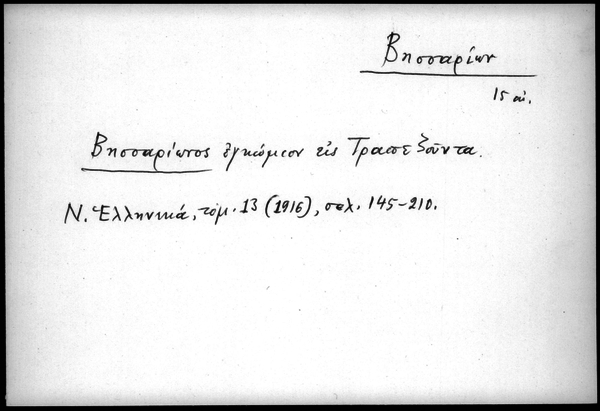 Βησσαρίων
15 αἰ.
Βησσαρίωνος ἐγκώμιον εἰς Τραπεζοῦντα.
Ν. Ἑλληνικά, τόμ. 13 (1916), σελ. 145-210.